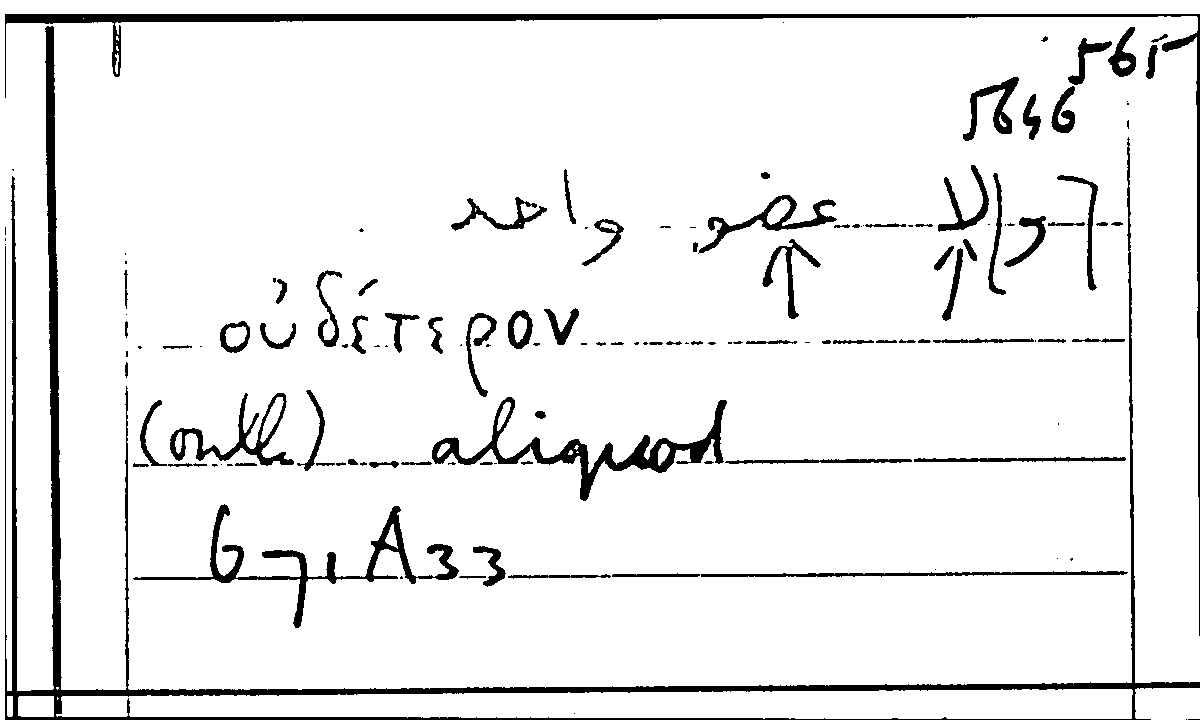 565
5646
[و] لا عضو واحد
οὐδέτερον
(om. ) ... aliquod
671 A 33